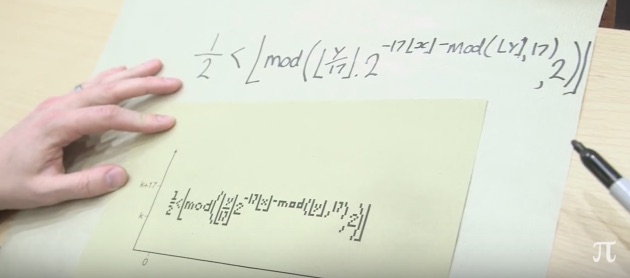 1/2 < ⌊mod(⌊y/17⌋.2^(-17⌊x⌋-mod(⌊y⌋,17)),2)⌋
k+17
1/2 < ⌊mod(⌊y/17⌋2^(-17⌊x⌋-mod(⌊y⌋,17)),2)⌋
k
0
π